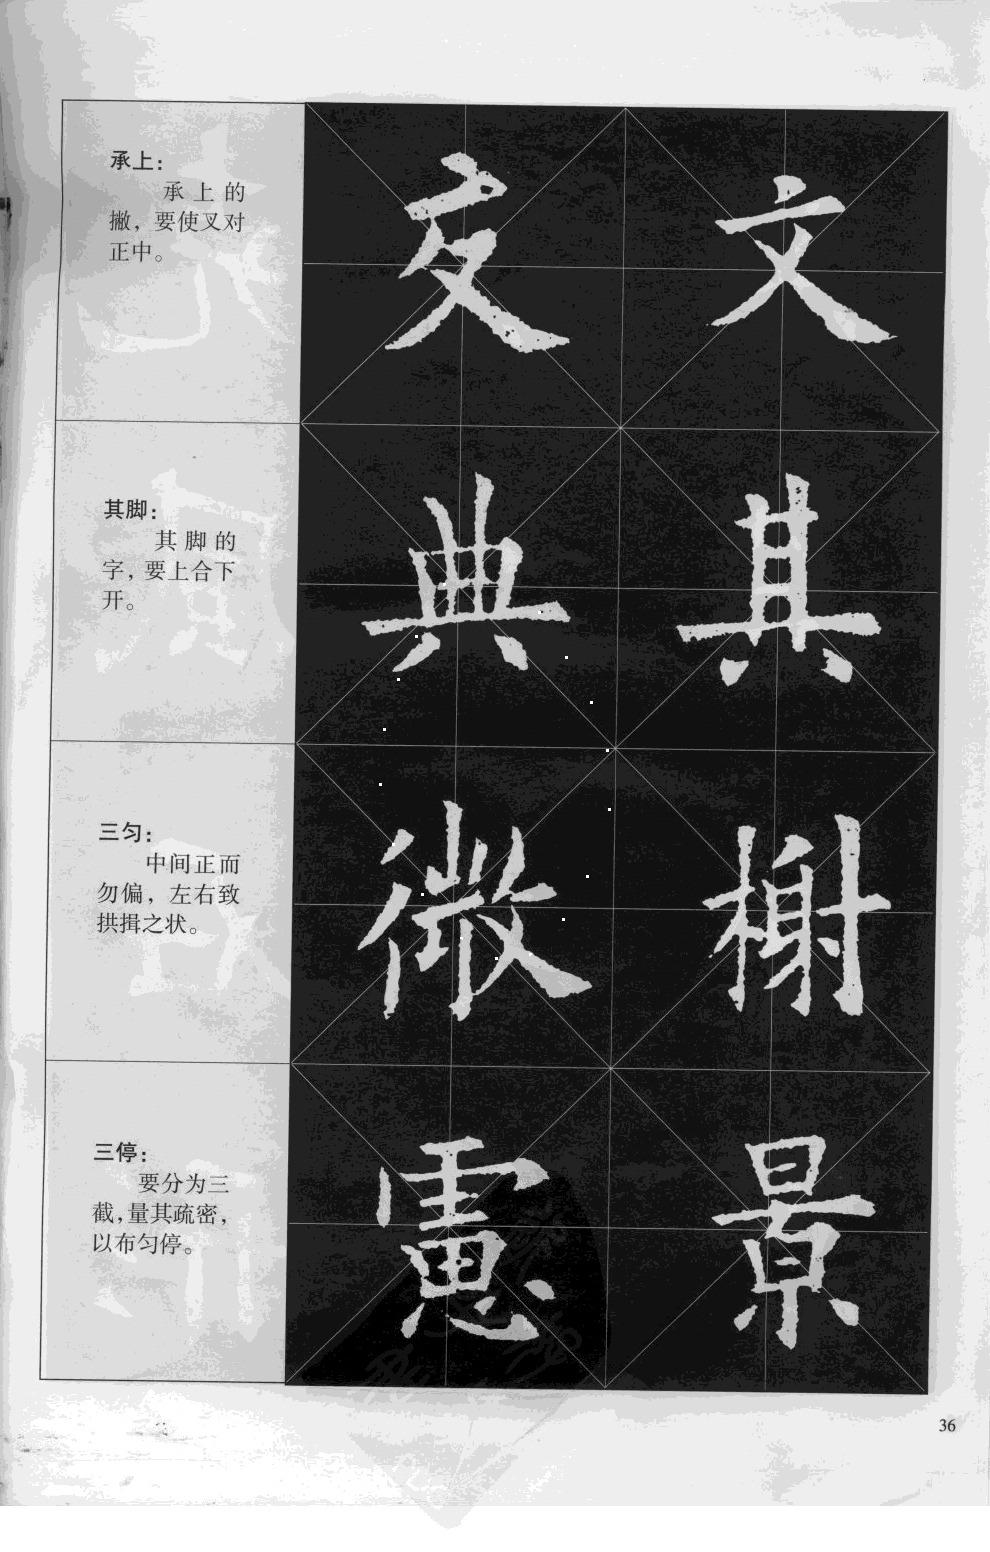 承上：
承上的
撇，要使叉对
正中。
文
其脚：
其脚的
字，要上合下
开。
典 其
三匀：
中间正而
勿偏，左右致
拱揖之状。
微 榭
三停：
要分为三
截，量其疏密，
以布匀停。
景
36